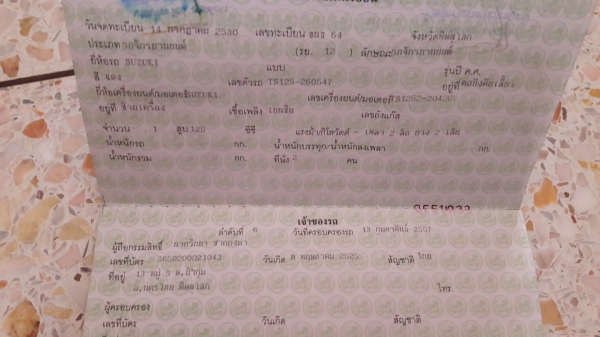 วันจดทะเบียน 14 กรกฎาคม 2530 เลขทะเบียน 64 จังหวัดพิษณุโลก
ประเภท รถจักรยานยนต์ (รย. 12 ) ลักษณะ รถจักรยานยนต์
ยี่ห้อรถ SUZUKI แบบ รุ่นปี ค.ศ.
สี แดง เลขตัวรถ TS125-260547 อยู่ที่
ยี่ห้อเครื่องยนต์/มอเตอร์ SUZUKI เลขเครื่องยนต์/มอเตอร์
อยู่ที่ ซ้ายเครื่อง เชื้อเพลิง เบนซิน เลขถังแก๊ส
จำนวน 1 สูบ 120 ซีซี แรงม้า/กิโลวัตต์ - เพลา 2 ล้อ ยาง 2 เส้น
น้ำหนักรถ กก. น้ำหนักบรรทุก/น้ำหนักลงเพลา กก.
น้ำหนักรวม กก. ที่นั่ง 2 คน
เจ้าของรถ
ลำดับที่ 6 วันที่ครอบครองรถ 13 กุมภาพันธ์ 2557
ผู้ถือกรรมสิทธิ์
เลขที่บัตร 3650200021043 วันเกิด 8 พฤษภาคม 2525 สัญชาติ ไทย
ที่อยู่ 13 หมู่ 5
อ.นครไทย พิษณุโลก โทร.
ผู้ครอบครอง
เลขที่บัตร วันเกิด สัญชาติ